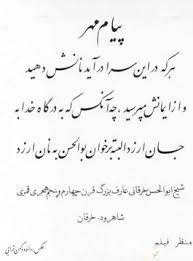 پیام مهر
هرکه در این سرا درآید نانش دهید
و از ایمانش مپرسید ، چه آنکس که به درگاه خدا به
جان ارزد البته بر خوان بوالحسن به نان ارزد
شیخ ابوالحسن خرقانی عارف بزرگ قرن چهارم و پنجم هجری قمری
شاهرود، خرقان
منظر فیلم
عکس: